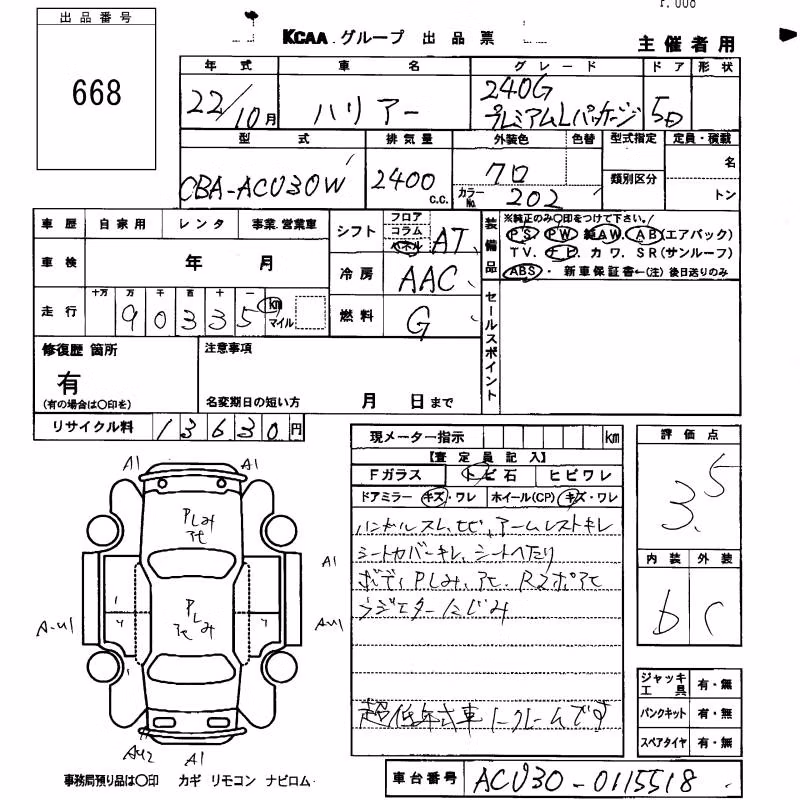 出品番号
668
KCAA グループ 出品票
主催者用
年式 車名 グレード ドア 形状
22/10月 ハリアー 240G プレミアムLパッケージ 5D
型式 排気量 外装色 色替 型式指定 定員・積載
CBA-ACU30W 2400 c.c. クロ カラーNo. 202 類別区分 名 トン
車歴 自家用 レンタ 事業.営業車
車検 年 月
走行 十万 万 千 百 十 一
9 0 3 3 5 km マイル
シフト フロア コラム パネル AT
冷房 AAC
燃料 G
装備品
※純正のみ○印をつけて下さい。
PS. PW. 純AW. AB(エアバック)
TV. ナビ. カワ. SR(サンルーフ)
ABS・ 新車保証書←(注)後日送りのみ
セールスポイント
修復歴 箇所
有
(有の場合は○印を)
注意事項
名変期日の短い方 月 日まで
リサイクル料 13630円
現メーター指示 km
【査定員記入】
Fガラス トビ石 ヒビワレ
ドアミラー キズ・ワレ ホイール(CP) キズ・ワレ
ハンドルスレ、ヒビ、アームレストキレ
シートカバーキレ、シートへたり
ボディPしみ、アセ、Rスポアセ
ラジエターにじみ
超低年式車 ノークレームです
評価点
3.5
内装 外装
b c
ジャッキ工具 有・無
パンクキット 有・無
スペアタイヤ 有・無
A1 A1
Pしみ
アセ
A1
Pしみ
アセ
A-U1 AU1
AU2 A1
事務局預り品は○印 カギ リモコン ナビロム
車台番号 ACU30-0115518